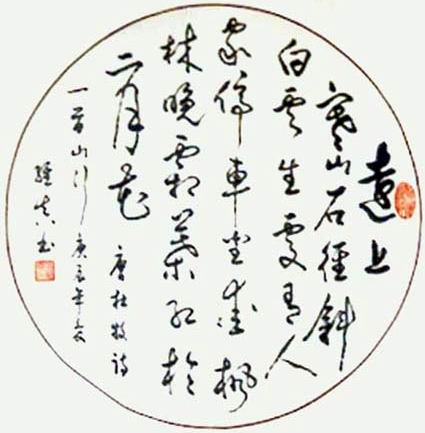 遠上
寒山石徑斜
白雲生處有人
家停車坐愛楓
林晚霜葉紅於
二月花
唐杜牧詩
一首山行庚辰年
書